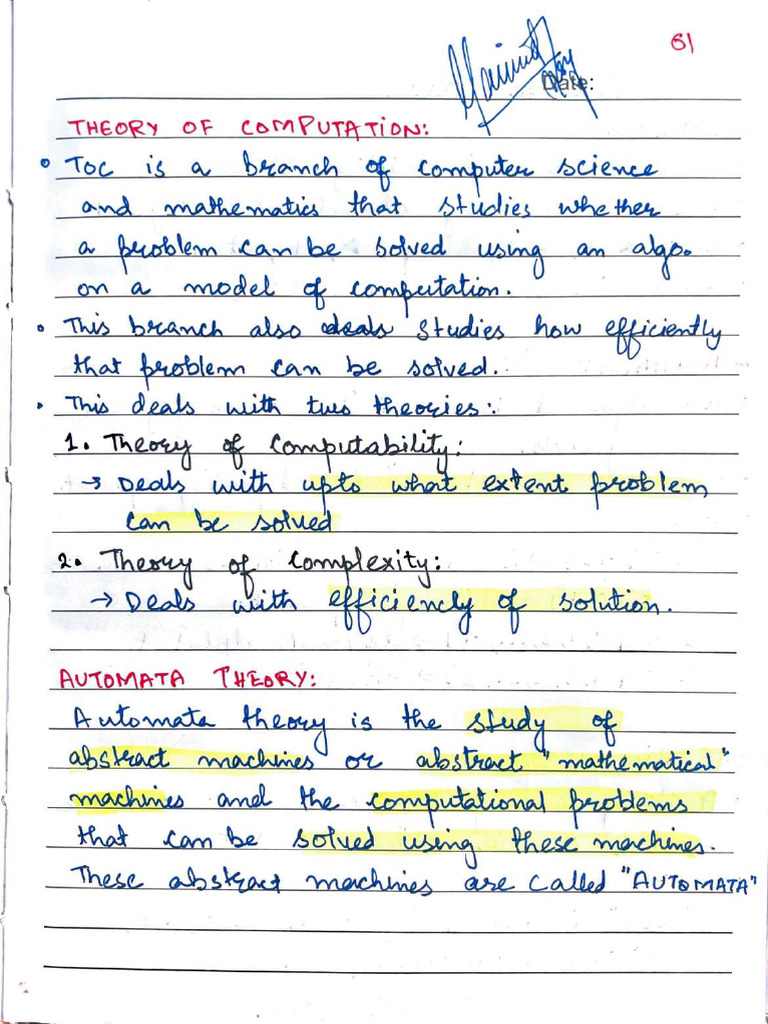 61
Date:
THEORY OF COMPUTATION:
• TOC is a branch of computer science
and mathematics that studies whether
a problem can be solved using an algo.
on a model of computation.
• This branch also deals studies how efficiently
that problem can be solved.
• This deals with two theories:
1. Theory of Computability:
→ Deals with upto what extent problem
can be solved
2. Theory of Complexity:
→ Deals with efficiency of solution.
AUTOMATA THEORY:
Automata theory is the study of
abstract machines or abstract "mathematical"
machines and the computational problems
that can be solved using these machines.
These abstract machines are called "AUTOMATA"